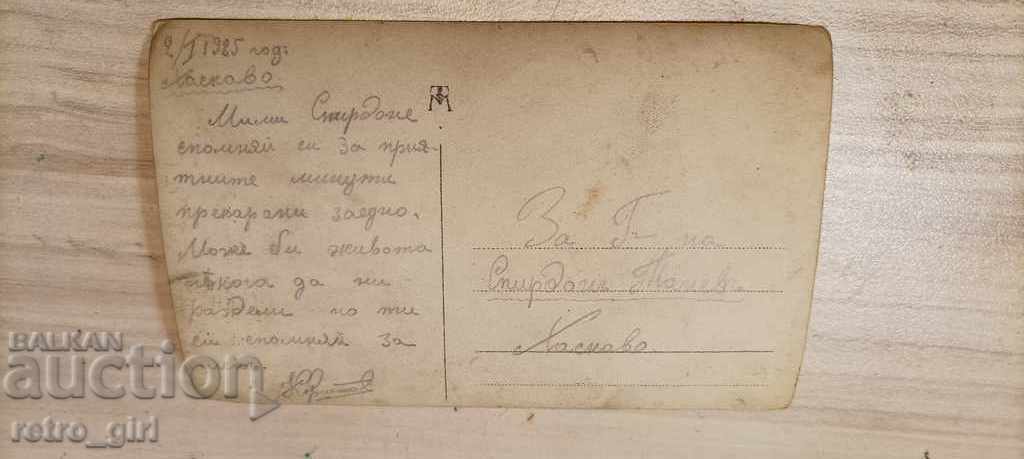 2/I 1925 год:
Хасково
Мили Спирдоне
спомняй си за прия-
тните минути
прекарани заедно.
Може би живота
някога да ни
раздели но ти
си спомняй за
За Г-на
Спирдон Танев
Хасково
BALKAN
auction
retro_girl